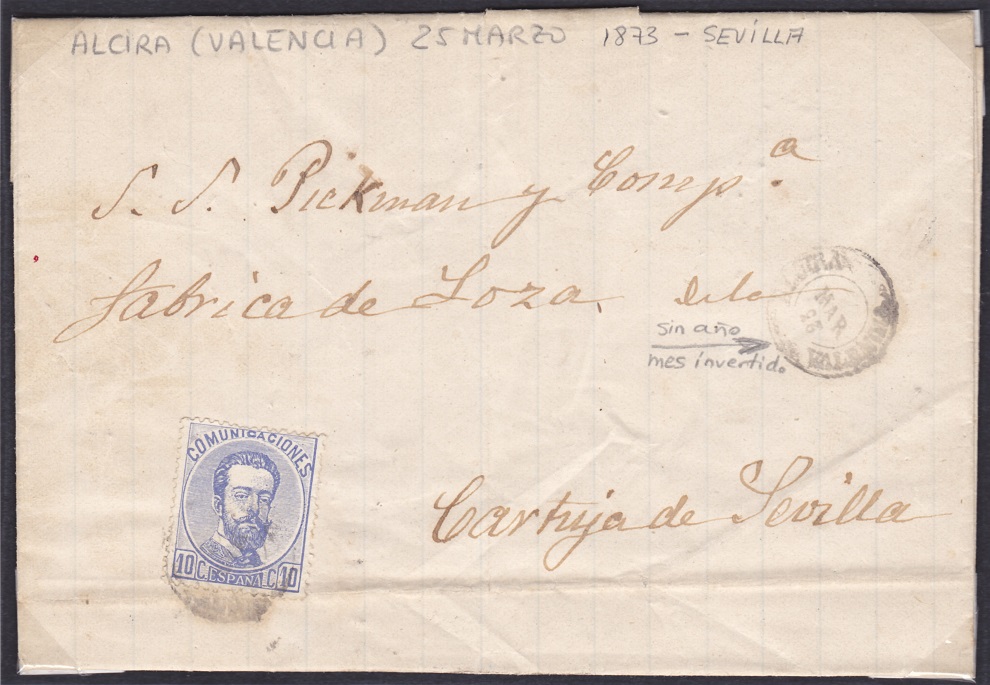 ALCIRA (VALENCIA) 25 MARZO 1873 - SEVILLA
S. S. Pickman y Comp.ª
fabrica de Loza. de la
MAR
25
sin año
mes invertido
Cartuja de Sevilla
COMUNICACIONES
10 C. ESPAÑA. C. 10